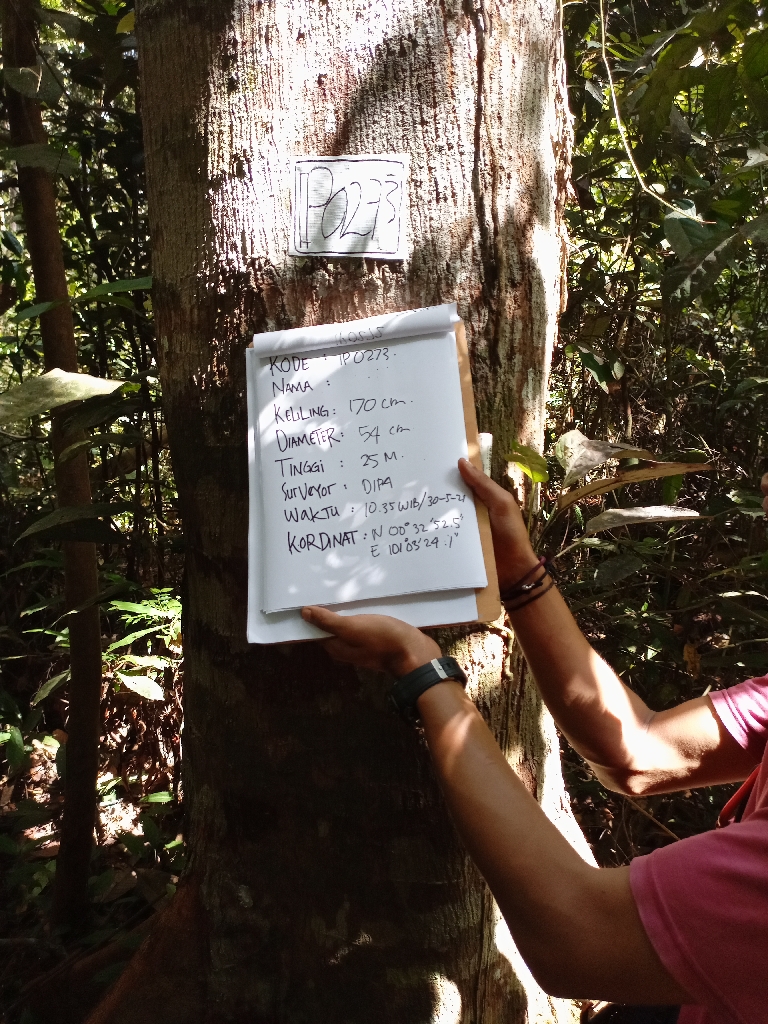 IP0273
KODE : IP0273.
NAMA :
KELILING : 170 cm.
DIAMETER : 54 cm
TINGGI : 25 M.
SURVEYOR : DIPA
WAKTU : 10.35 WIB/30-5-21
KORDINAT : N 00° 32' 52.5"
E 101° 03' 24.1"